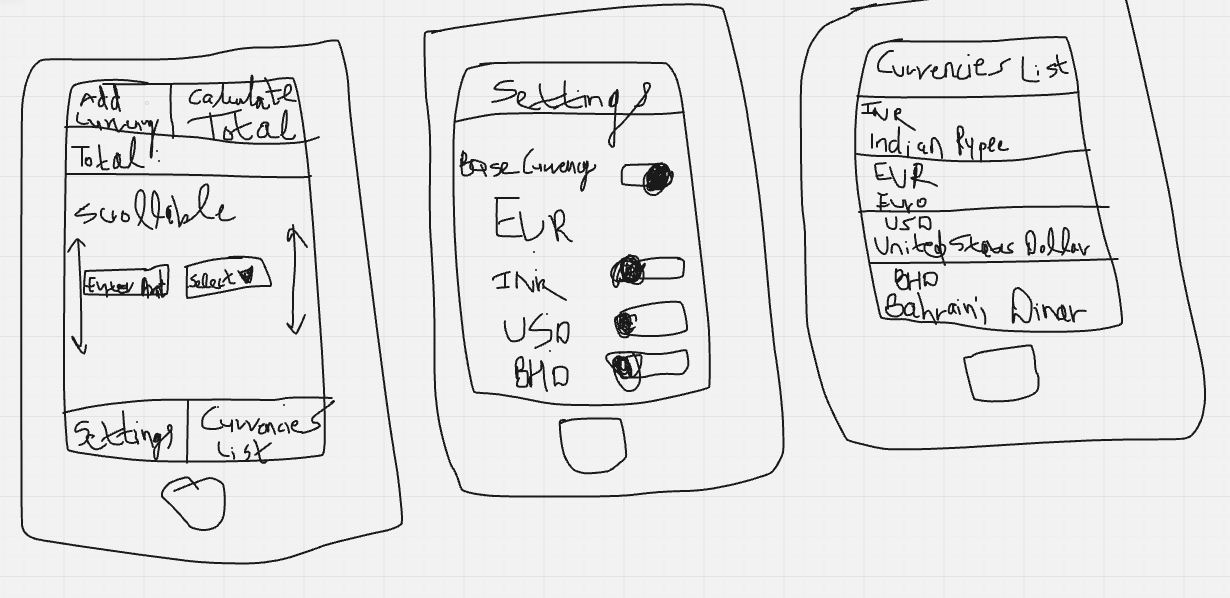 Add
Currency
Calculate
Total
Total:
Scrollable
Enter Amt
Select
Settings
Currencies
List
Settings
Base Currency
EUR
INR
USD
BHD
Currencies List
INR
Indian Rupee
EUR
Euro
USD
United States Dollar
BHD
Bahraini Dinar